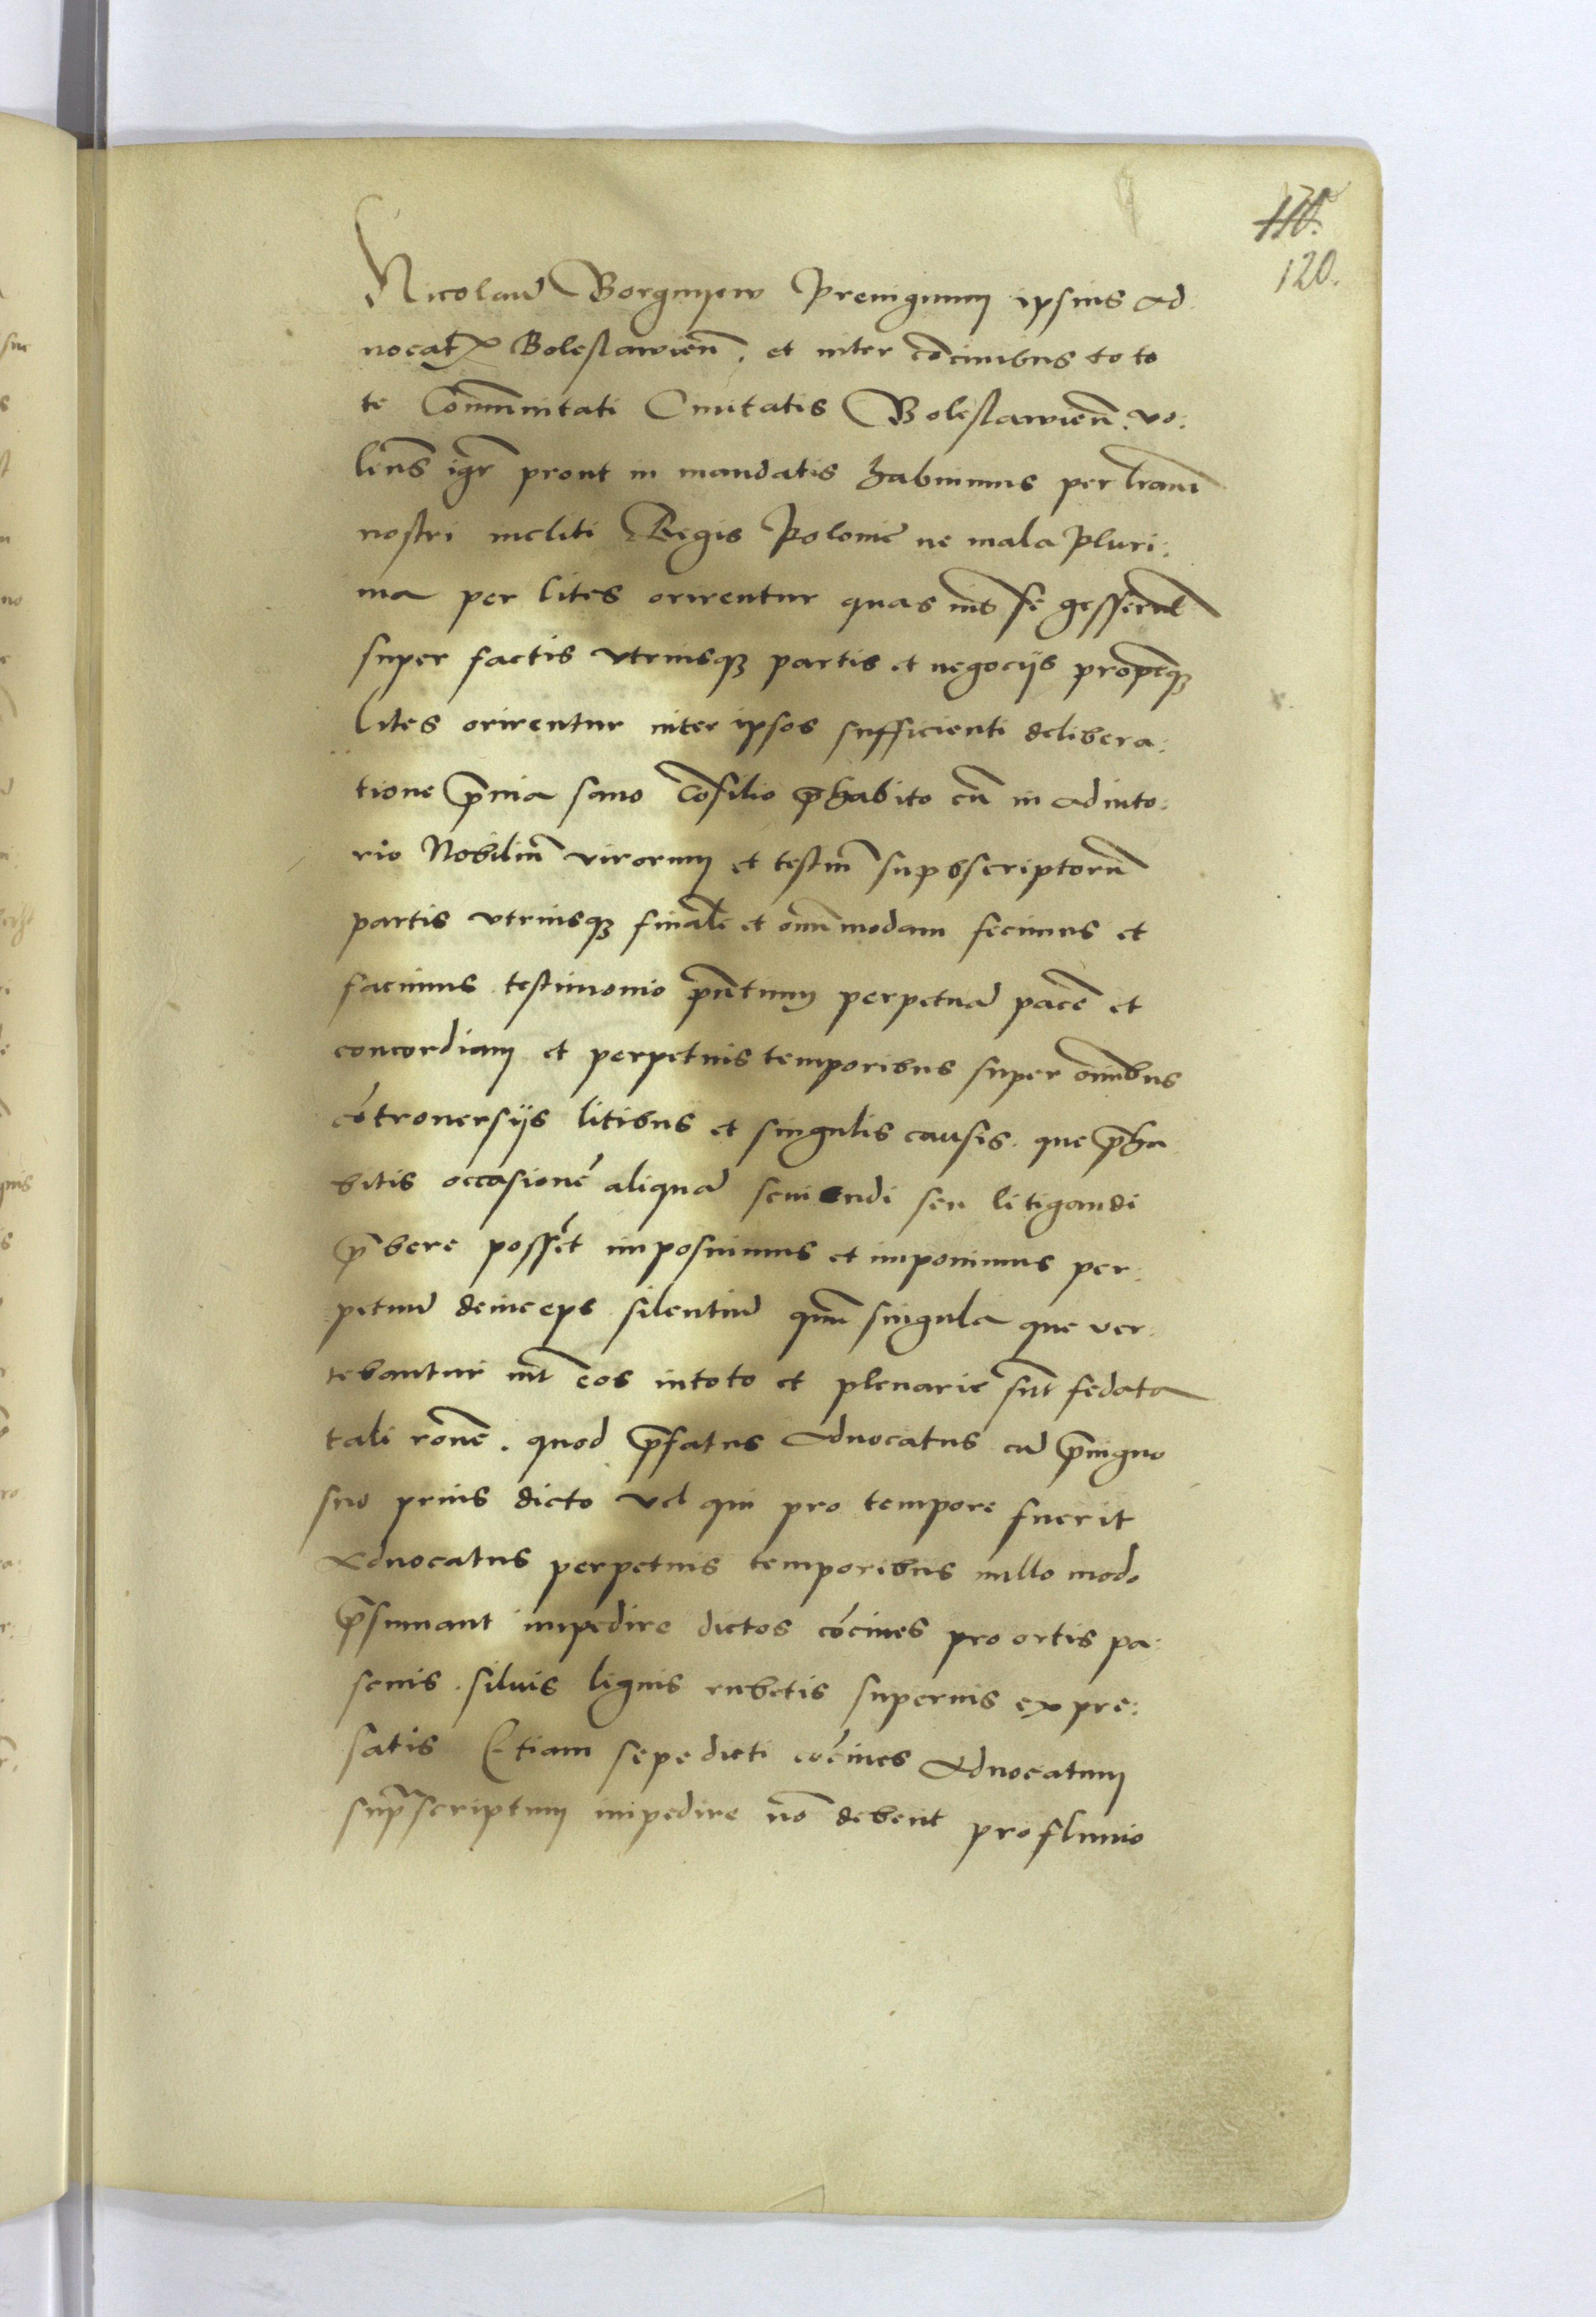 110.
120.
Nicolaū Borgnyew Preuignum ipsius Ad
uocat Boleslawień. et inter cōciuibus to to
te Cōmunitati Ciuitatis Boleslawień. vo:
leńs igr̄ prout in mandatis habuimus per lr̄am
nostri incliti Regis Polonie ne mala pluri:
ma per lites orirentur quas int̄ se gesserūt
super factis vtriusqꝫ partis et negocijs
lites orirentur inter ipsos sufficienti delibera:
tione p̄uia sano cōsilio p̄habito cū in adiuto:
rio Nobiliū virorum et testiū supbscriptorū
partis vtriusqꝫ finalē et om̄imodam fecimus et
facimus testimonio pn̄tium perpetuā pacē et
concordiam et perpetuis temporibus super om̄ibus
cōtrouersijs litibus et singulis causis que p̄ha
bitis occasionē aliquā seuiendi seu litigandi
p̄bere possēt imposuimus et imponimus per:
petuū deinceps silentiū qm̄ singula que ver:
tebantur int̄ eos intoto et plenarie sūt sedata
tali rōne. quod p̄fatus Aduocatus cū p̄uigno
suo prius dicto vel qui pro tempore fuerit
Aduocatus perpetuis temporibus nullo modo
p̄sumant impedire dictos cōciues pro ortis pa:
scuis siluis lignis rubetis superius expre:
satis Etiam sepe dicti cōciues Aduocatum
supᵃscriptum inpedire nō debent pro fluuio